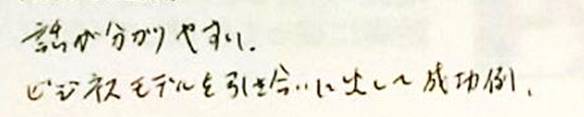 話が分かりやすい.
ビジネスモデルを引き合いに出して成功例.